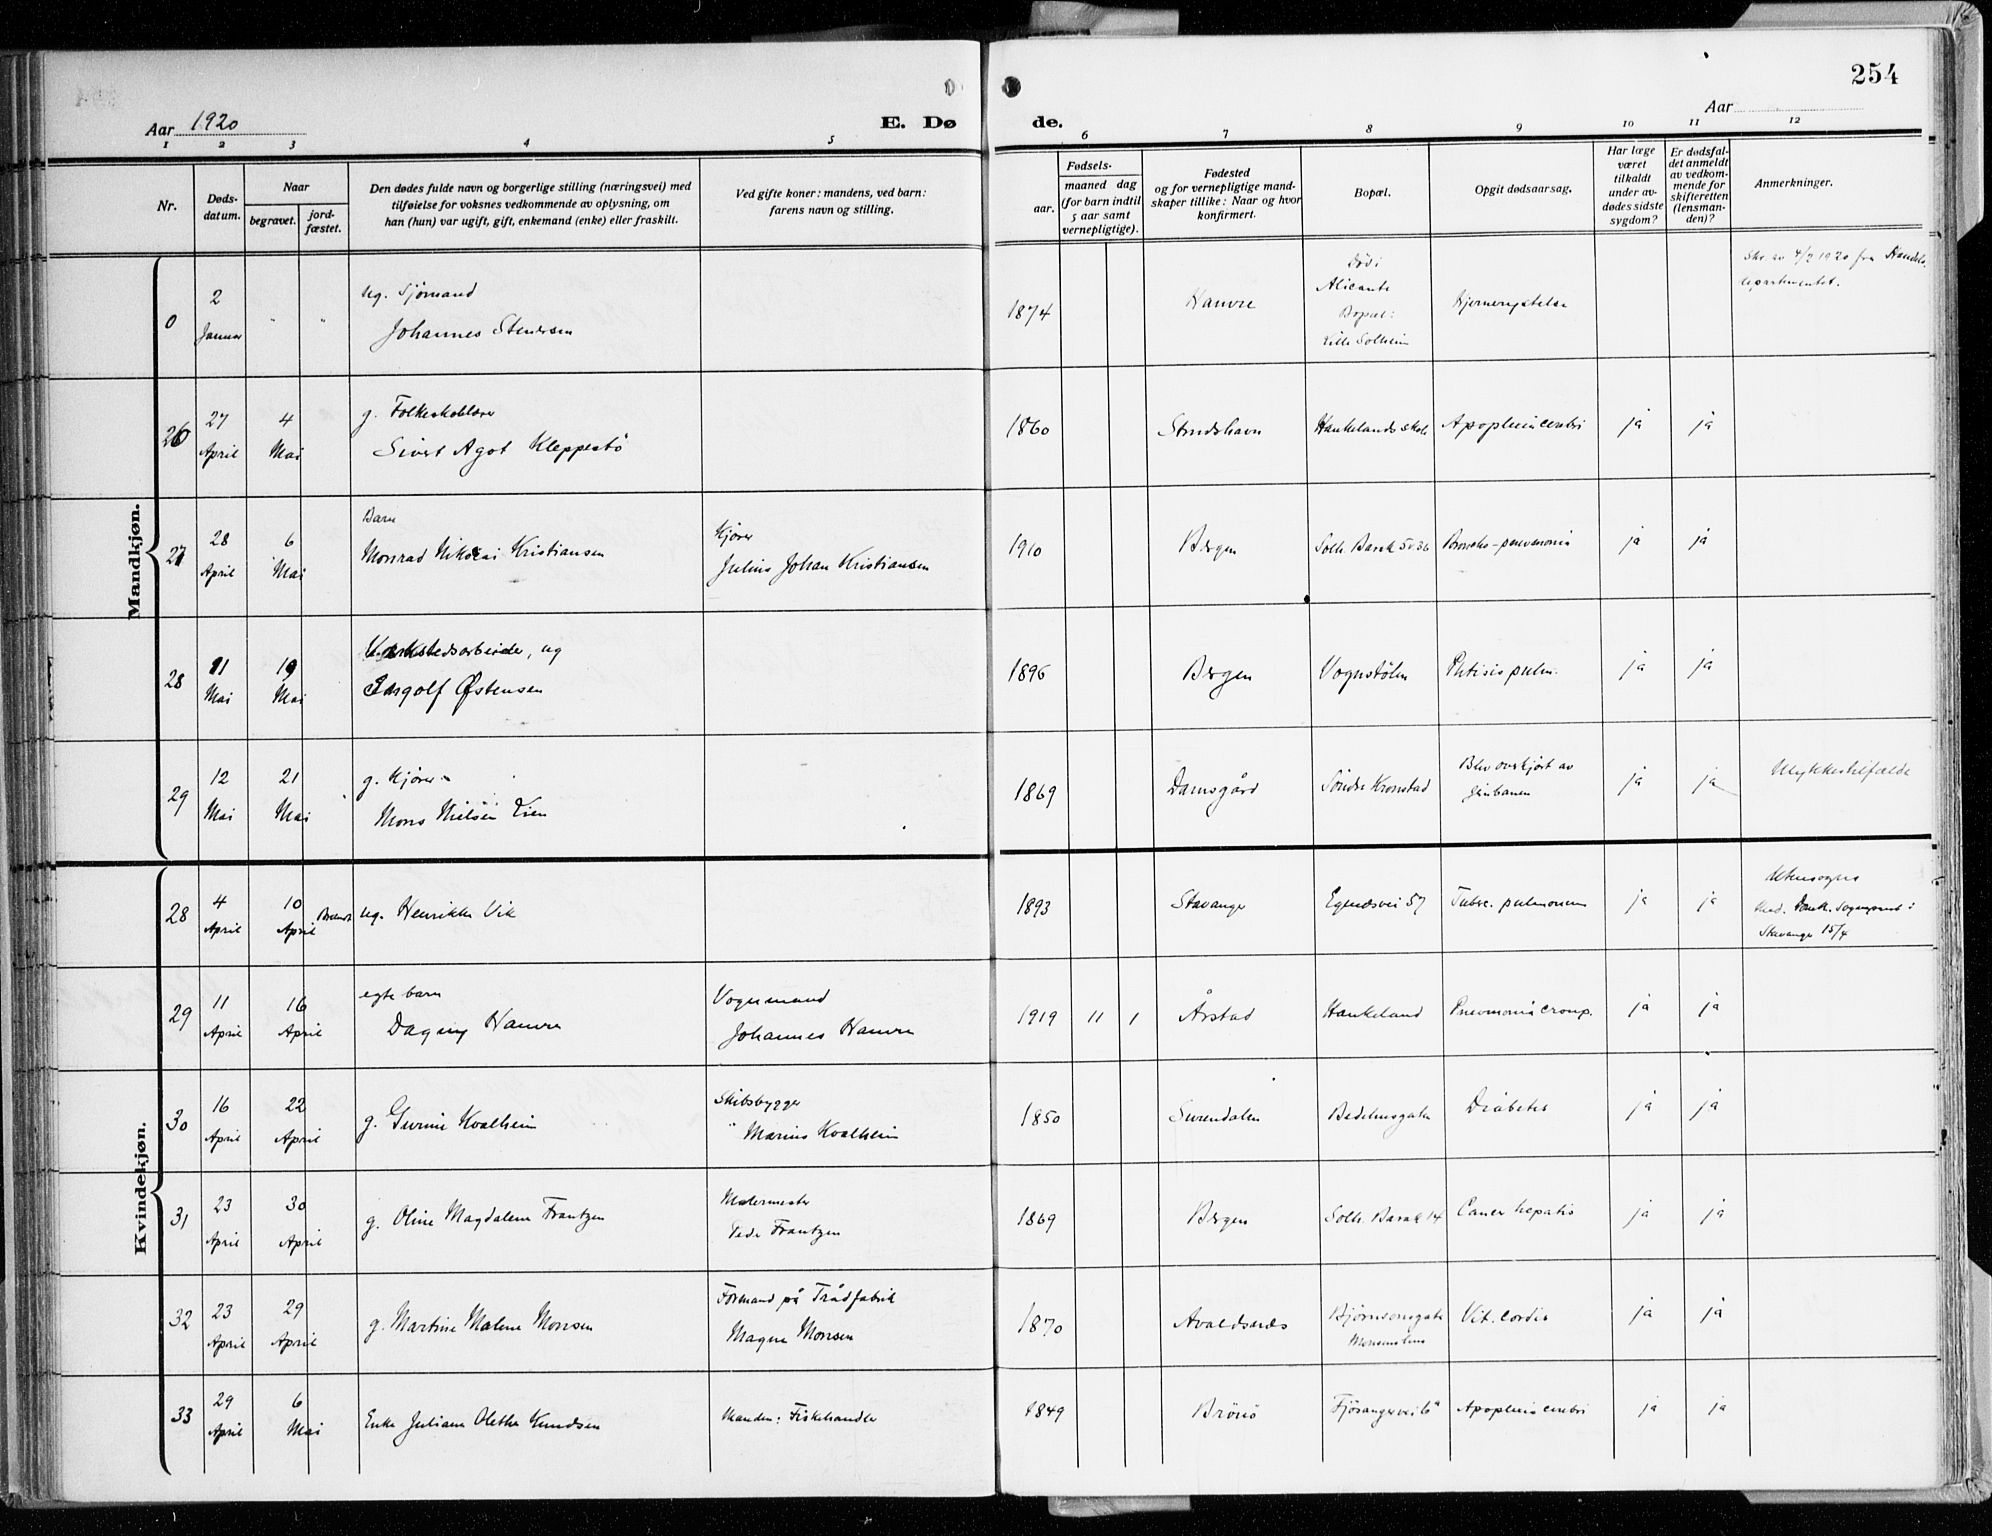 254
Aar 1920
E. Dø
de.
Aar
1 2 3 4 5 6 7 8 9 10 11 12
Nr.
Døds-
datum.
Naar
begravet.
jord-
fæstet.
Den dødes fulde navn og borgerlige stilling (næringsvei) med
tilføielse for voksnes vedkommende av oplysning, om
han (hun) var ugift, gift, enkemand (enke) eller fraskilt.
Ved gifte koner: mandens, ved barn:
farens navn og stilling.
Fødsels-
aar.
maaned dag
(for barn indtil
5 aar samt
vernepligtige).
Fødested
og for vernepligtige mand-
skaper tillike: Naar og hvor
konfirmert.
Bopæl.
Opgit dødsaarsag.
Har læge
været
tilkaldt
under av-
dødes sidste
sygdom?
Er dødsfal-
det anmeldt
av vedkom-
mende for
skifteretten
(lensman-
den)?
Anmerkninger.
Mandkjøn.
0
2
Januar
" "
ug. Sjømand
Johannes Stenersen
1874
Haurre
Død i
Alicante
Bopæl:
Lille Solheim
Hjernerystelse
Skr. av 4/2 1920 fra Handels.
departementet.
26
27 4
April Mai
g. Folkeskolelærer
Sivert Agot Kleppestö
1860
Strudshavn
Haukelands skole
Apoplexia cerebri
ja ja
27
28 6
April Mai
Barn
Monrad Nikolai Kristiansen
Kjører
Julius Johan Kristiansen
1910
Bergen
Solh. Barak 5 v 36
Broncho-pneumonia
ja ja
28
11 19
Mai Mai
Verkstedsarbeider, ug
Ingolf Østensen
1896
Bergen
Vognstölen
Phtisis pulm.
ja ja
29
12 21
Mai Mai
g. Kjører
Mons Nielsen Lien
1869
Damsgård
Söndre Kronstad
Blev overkjört av
Jernbanen
ja ja
Ulykkestilfælde
Kvindekjøn.
28
4 10
April April
ug. Henrikke Vik
1893
Stavanger
Egnesvei 57
Tuberc. pulmonum
ja ja
Utensogns
Stavanger 15/4
29
11 16
April April
egte barn
Dagny Haurre
Vognmand
Johannes Haurre
1919 11 1
Årstad
Haukeland
Pneumonia croup.
ja ja
30
16 22
April April
g. Gurine Kvalheim
Skibsbygger
Marius Kvalheim
1850
Surendalen
Badehusgaten
Diabetes
ja ja
31
23 30
April April
g. Oline Magdalene Frantzen
Malermester
Peder Frantzen
1869
Bergen
Solh. Barak 14
Cancer hepatis
ja ja
32
23 29
April April
g. Martine Malene Monsen
Formand på Trådfabrik
Magne Monsen
1870
Avaldsnes
Bjørnsonsgate
Vit. cordis
ja ja
33
29 6
April Mai
Enke Juliane Olethe Knudsen
Manden: Fiskehandler
1849
Brönö
Fjösangerveien
Apoplexia cerebri
ja ja